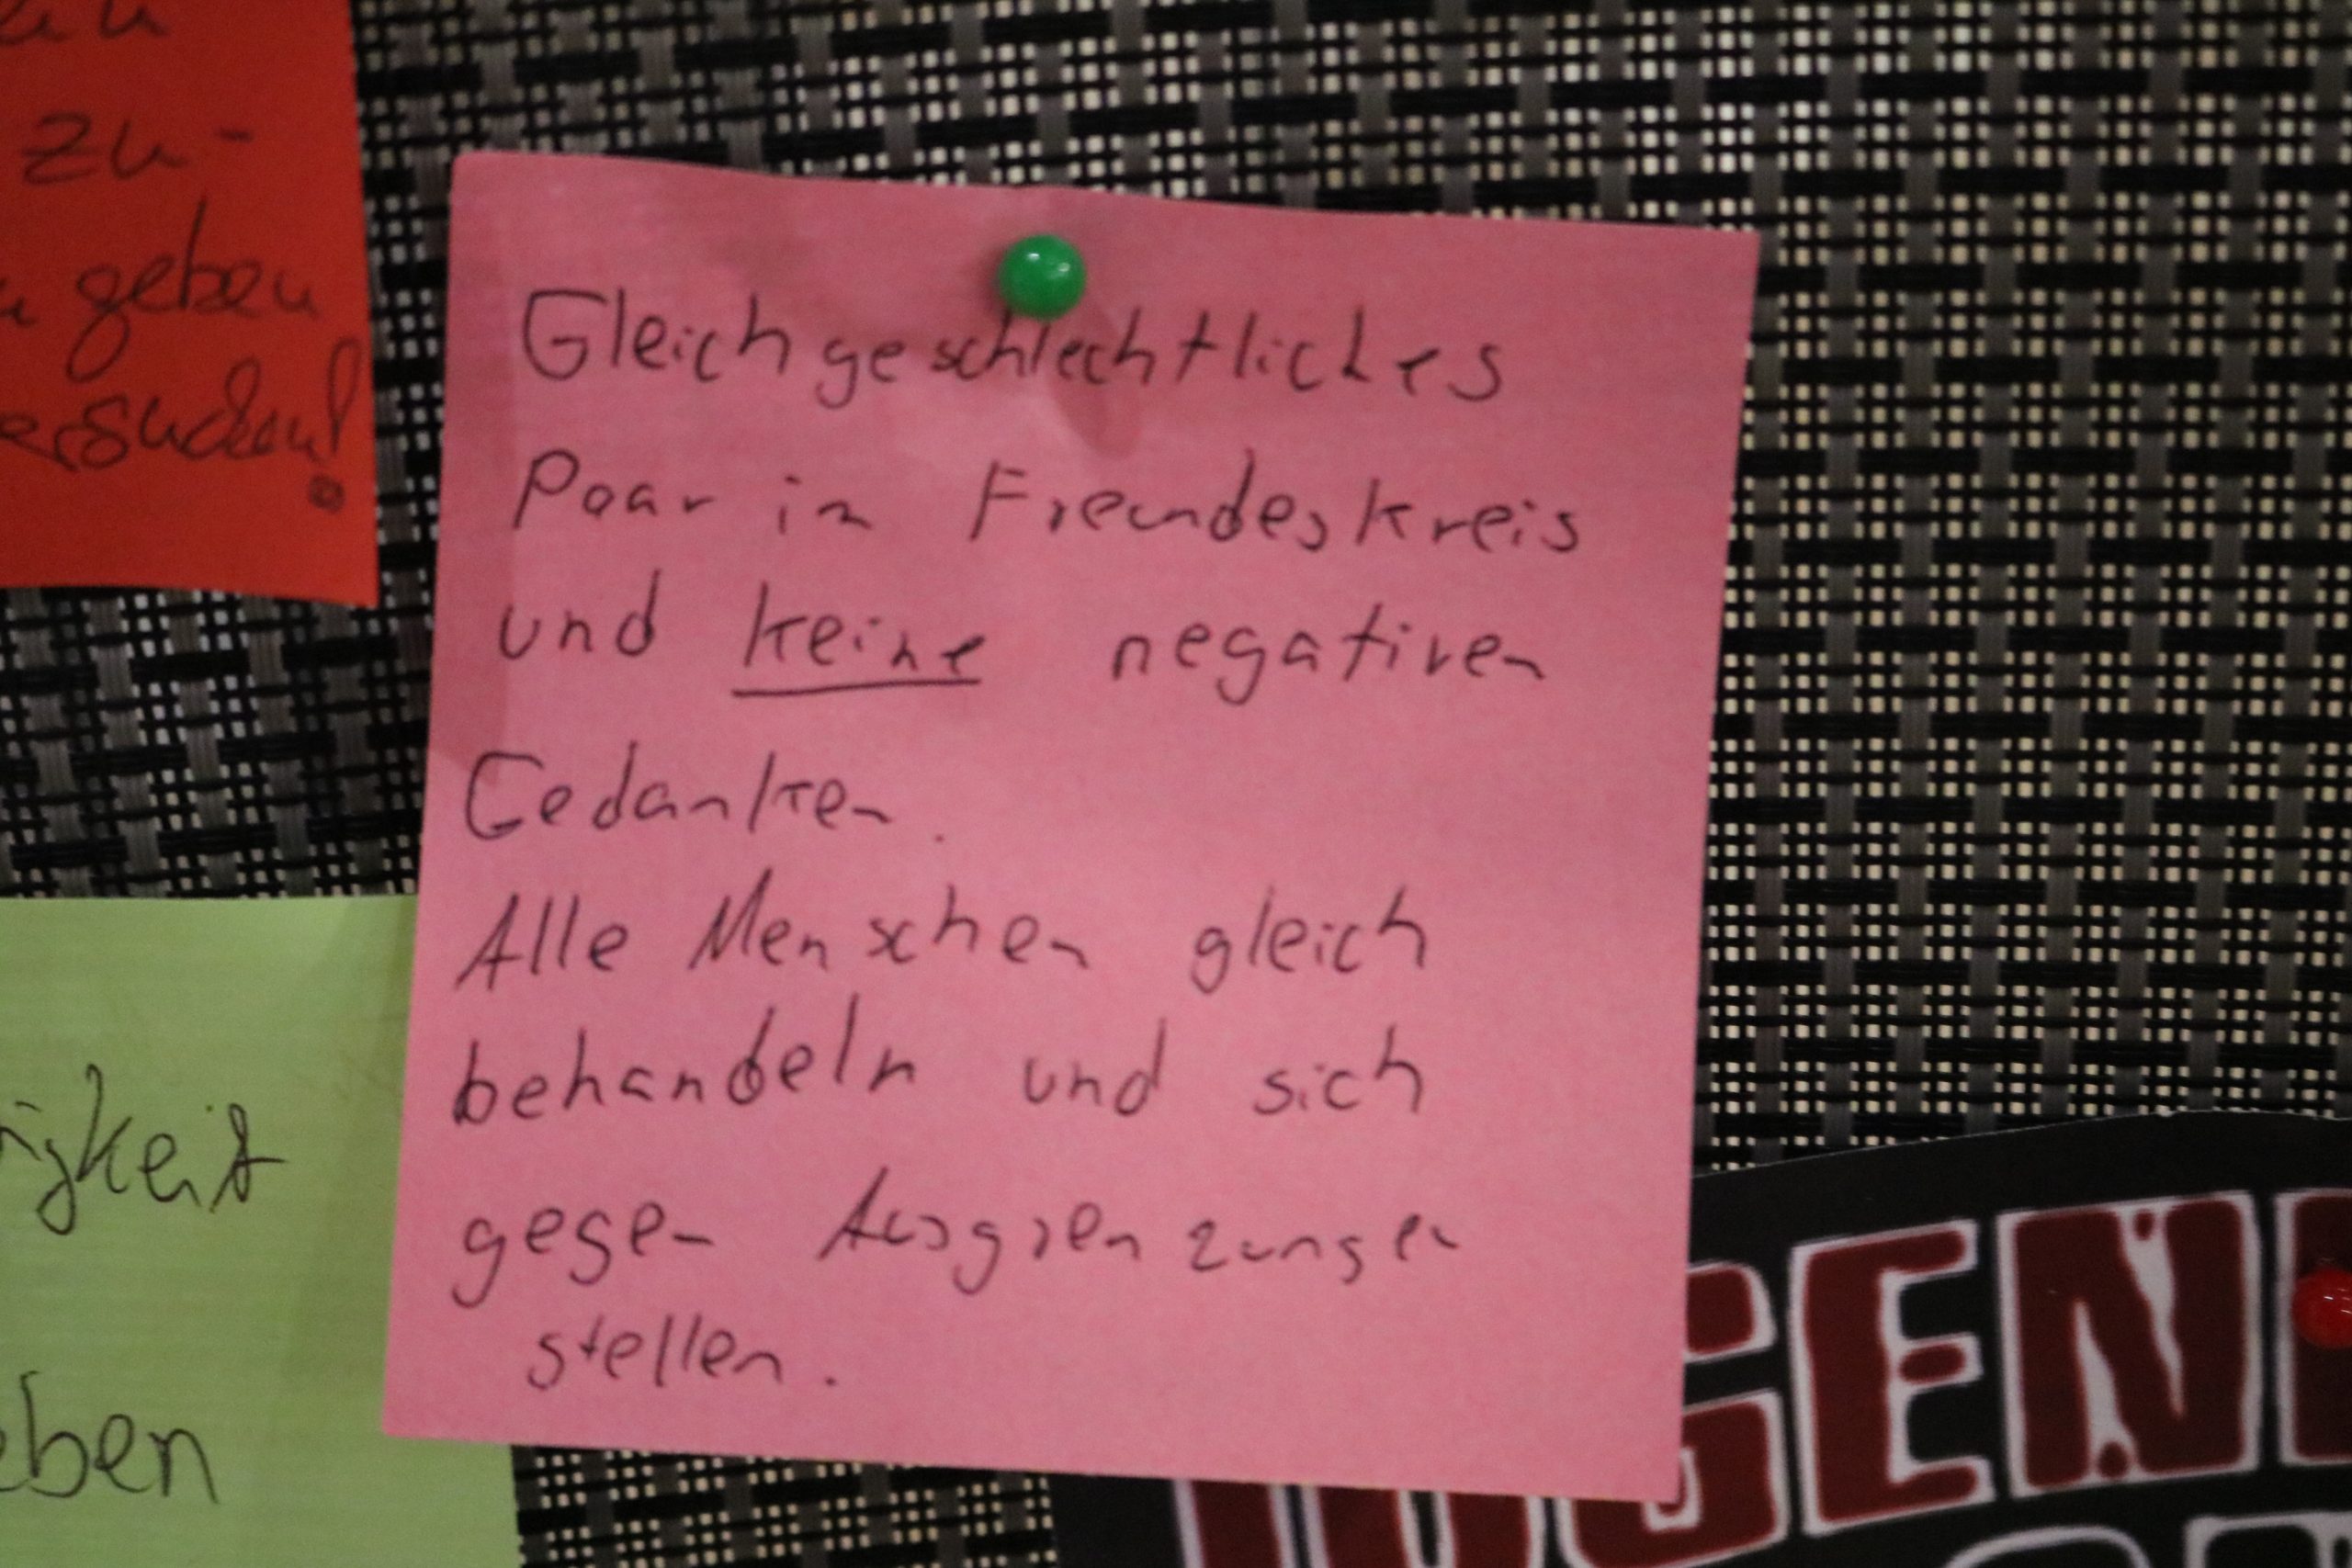 zu-
geben
Gleichgeschlechtliches
Paar in Freundeskreis
und keine negativen
Gedanken.
Alle Menschen gleich
behandeln und sich
gegen Ausgrenzungen
stellen.
igkeit
eben
UGEN